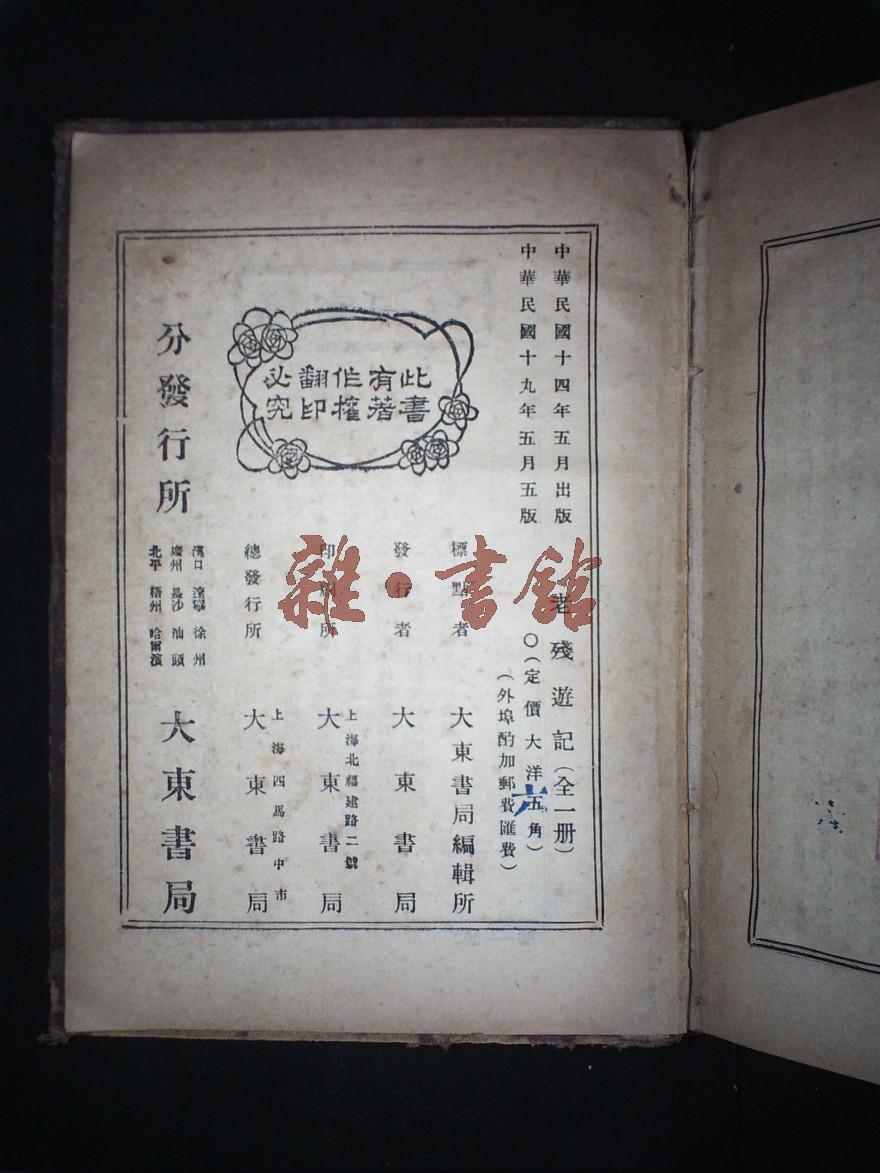 中華民國十四年五月出版
中華民國十九年五月五版
老殘遊記(全一册)
○(定價大洋五角)
六
(外埠酌加郵費匯費)
此書
有著
作權
翻印
必究
標點者 大東書局編輯所
發行者 大東書局
印刷所 上海北福建路二號 大東書局
總發行所 上海四馬路中市 大東書局
分發行所
漢口 遼寧 徐州
廣州 長沙 汕頭
北平 梧州 哈爾濱
大東書局
雜·書館